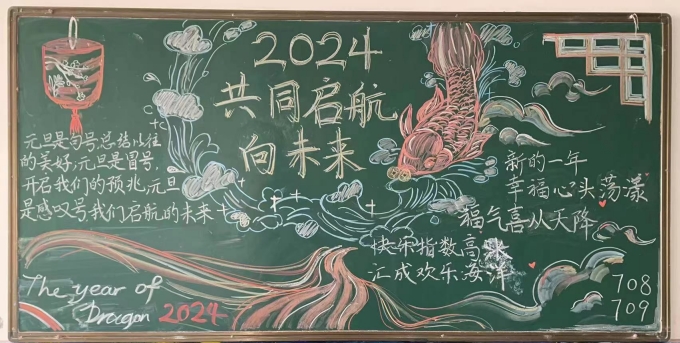 2024
共同启航
向未来
元旦是句号,总结以往
的美好,元旦是冒号,
开启我们的预兆,元旦
是感叹号,我们启航的未来
新的一年
幸福心头荡漾
福气喜从天降
快乐指数高涨
汇成欢乐海洋
The year of
Dragon 2024
708
709